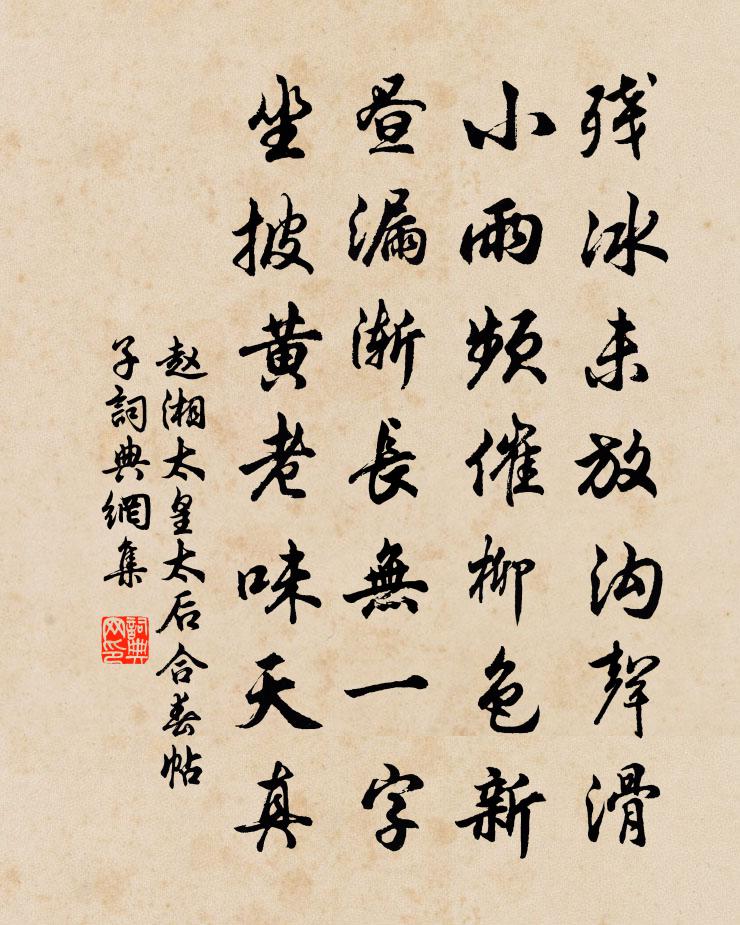 残冰未放沟聲滑
小雨頻催柳色新
昼漏渐長無一字
坐披黄老味天真
赵湘太皇太后合春帖
子詞典網集
詞典
网印